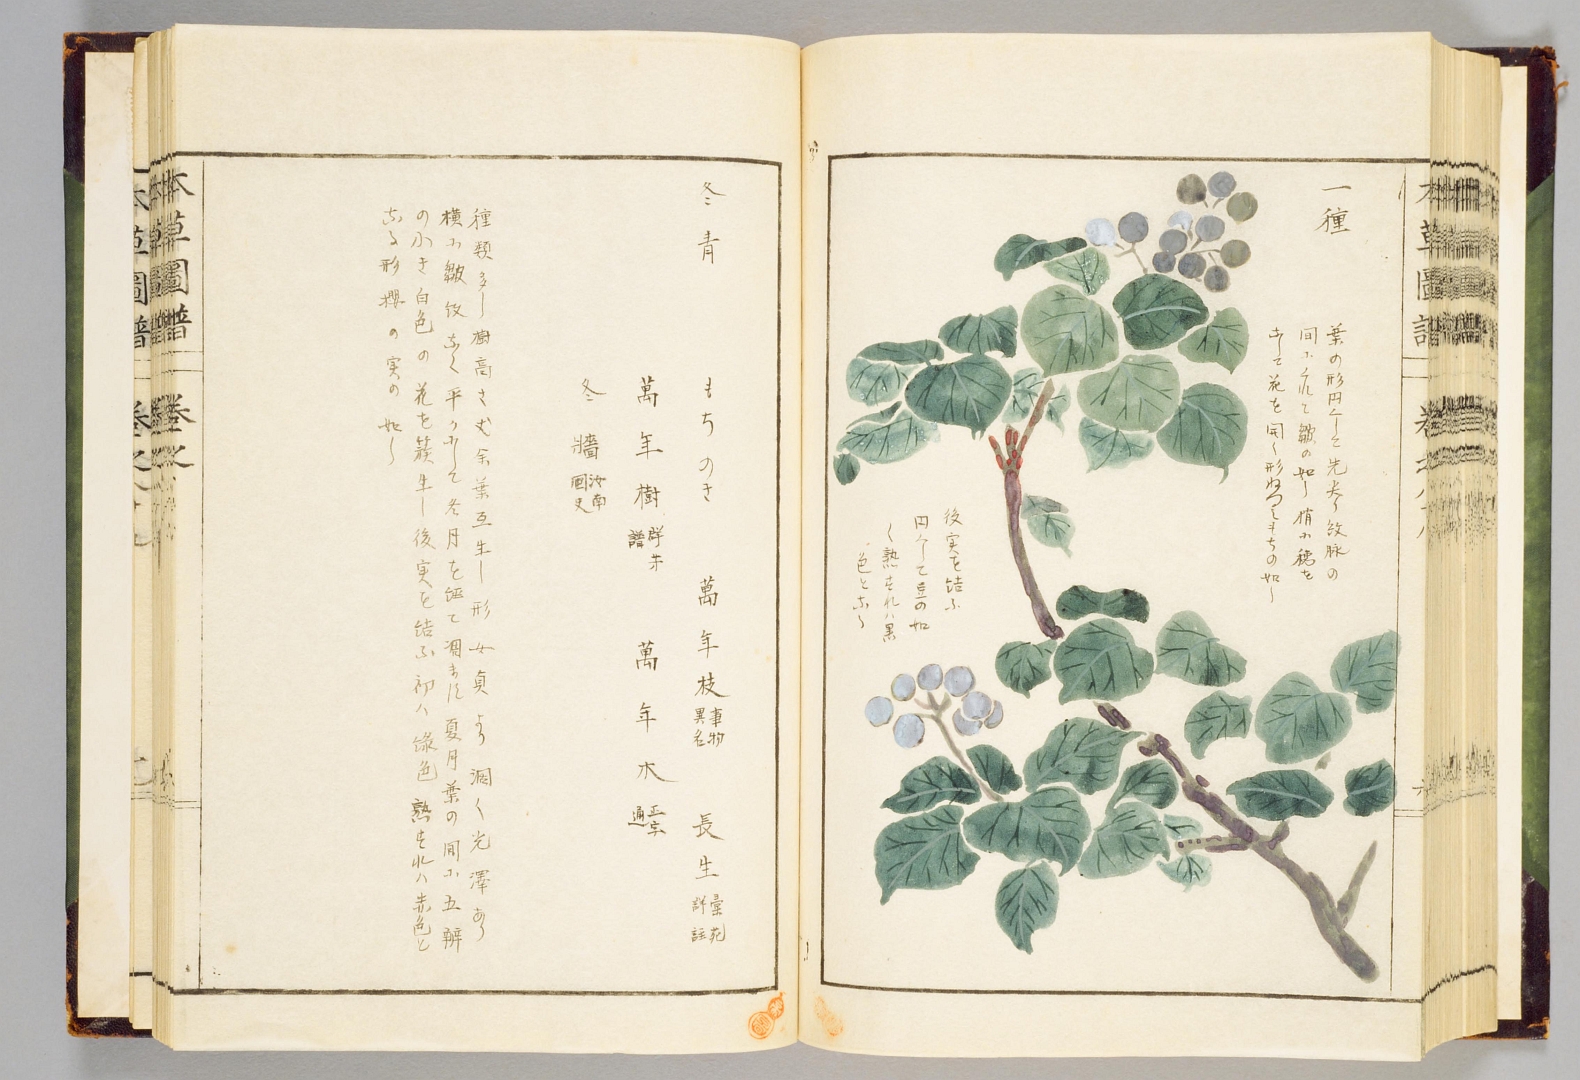 一種
葉の形円くして先尖り紋脉の
間小〆皺の如し梢小穂を
なして花を開く形ねずみもちの如し
後実を結ふ
円くして豆の如
く熟すれハ黒
色となる
冬青
もちのき
萬年枝 事物異名
長生 彙苑詳註
萬年樹 群芳譜
萬年木 正字通
冬牆 汝南圃史
種類多し樹高さ丈余葉互生し形女貞より濶く光澤あり
横小皺紋なく平かにして冬月を経て凋まず夏月葉の間小五瓣
の小き白色の花を簇生し後実を結ふ初ハ緑色熟すれハ赤色と
なる形櫻の実の如し
本草圖譜